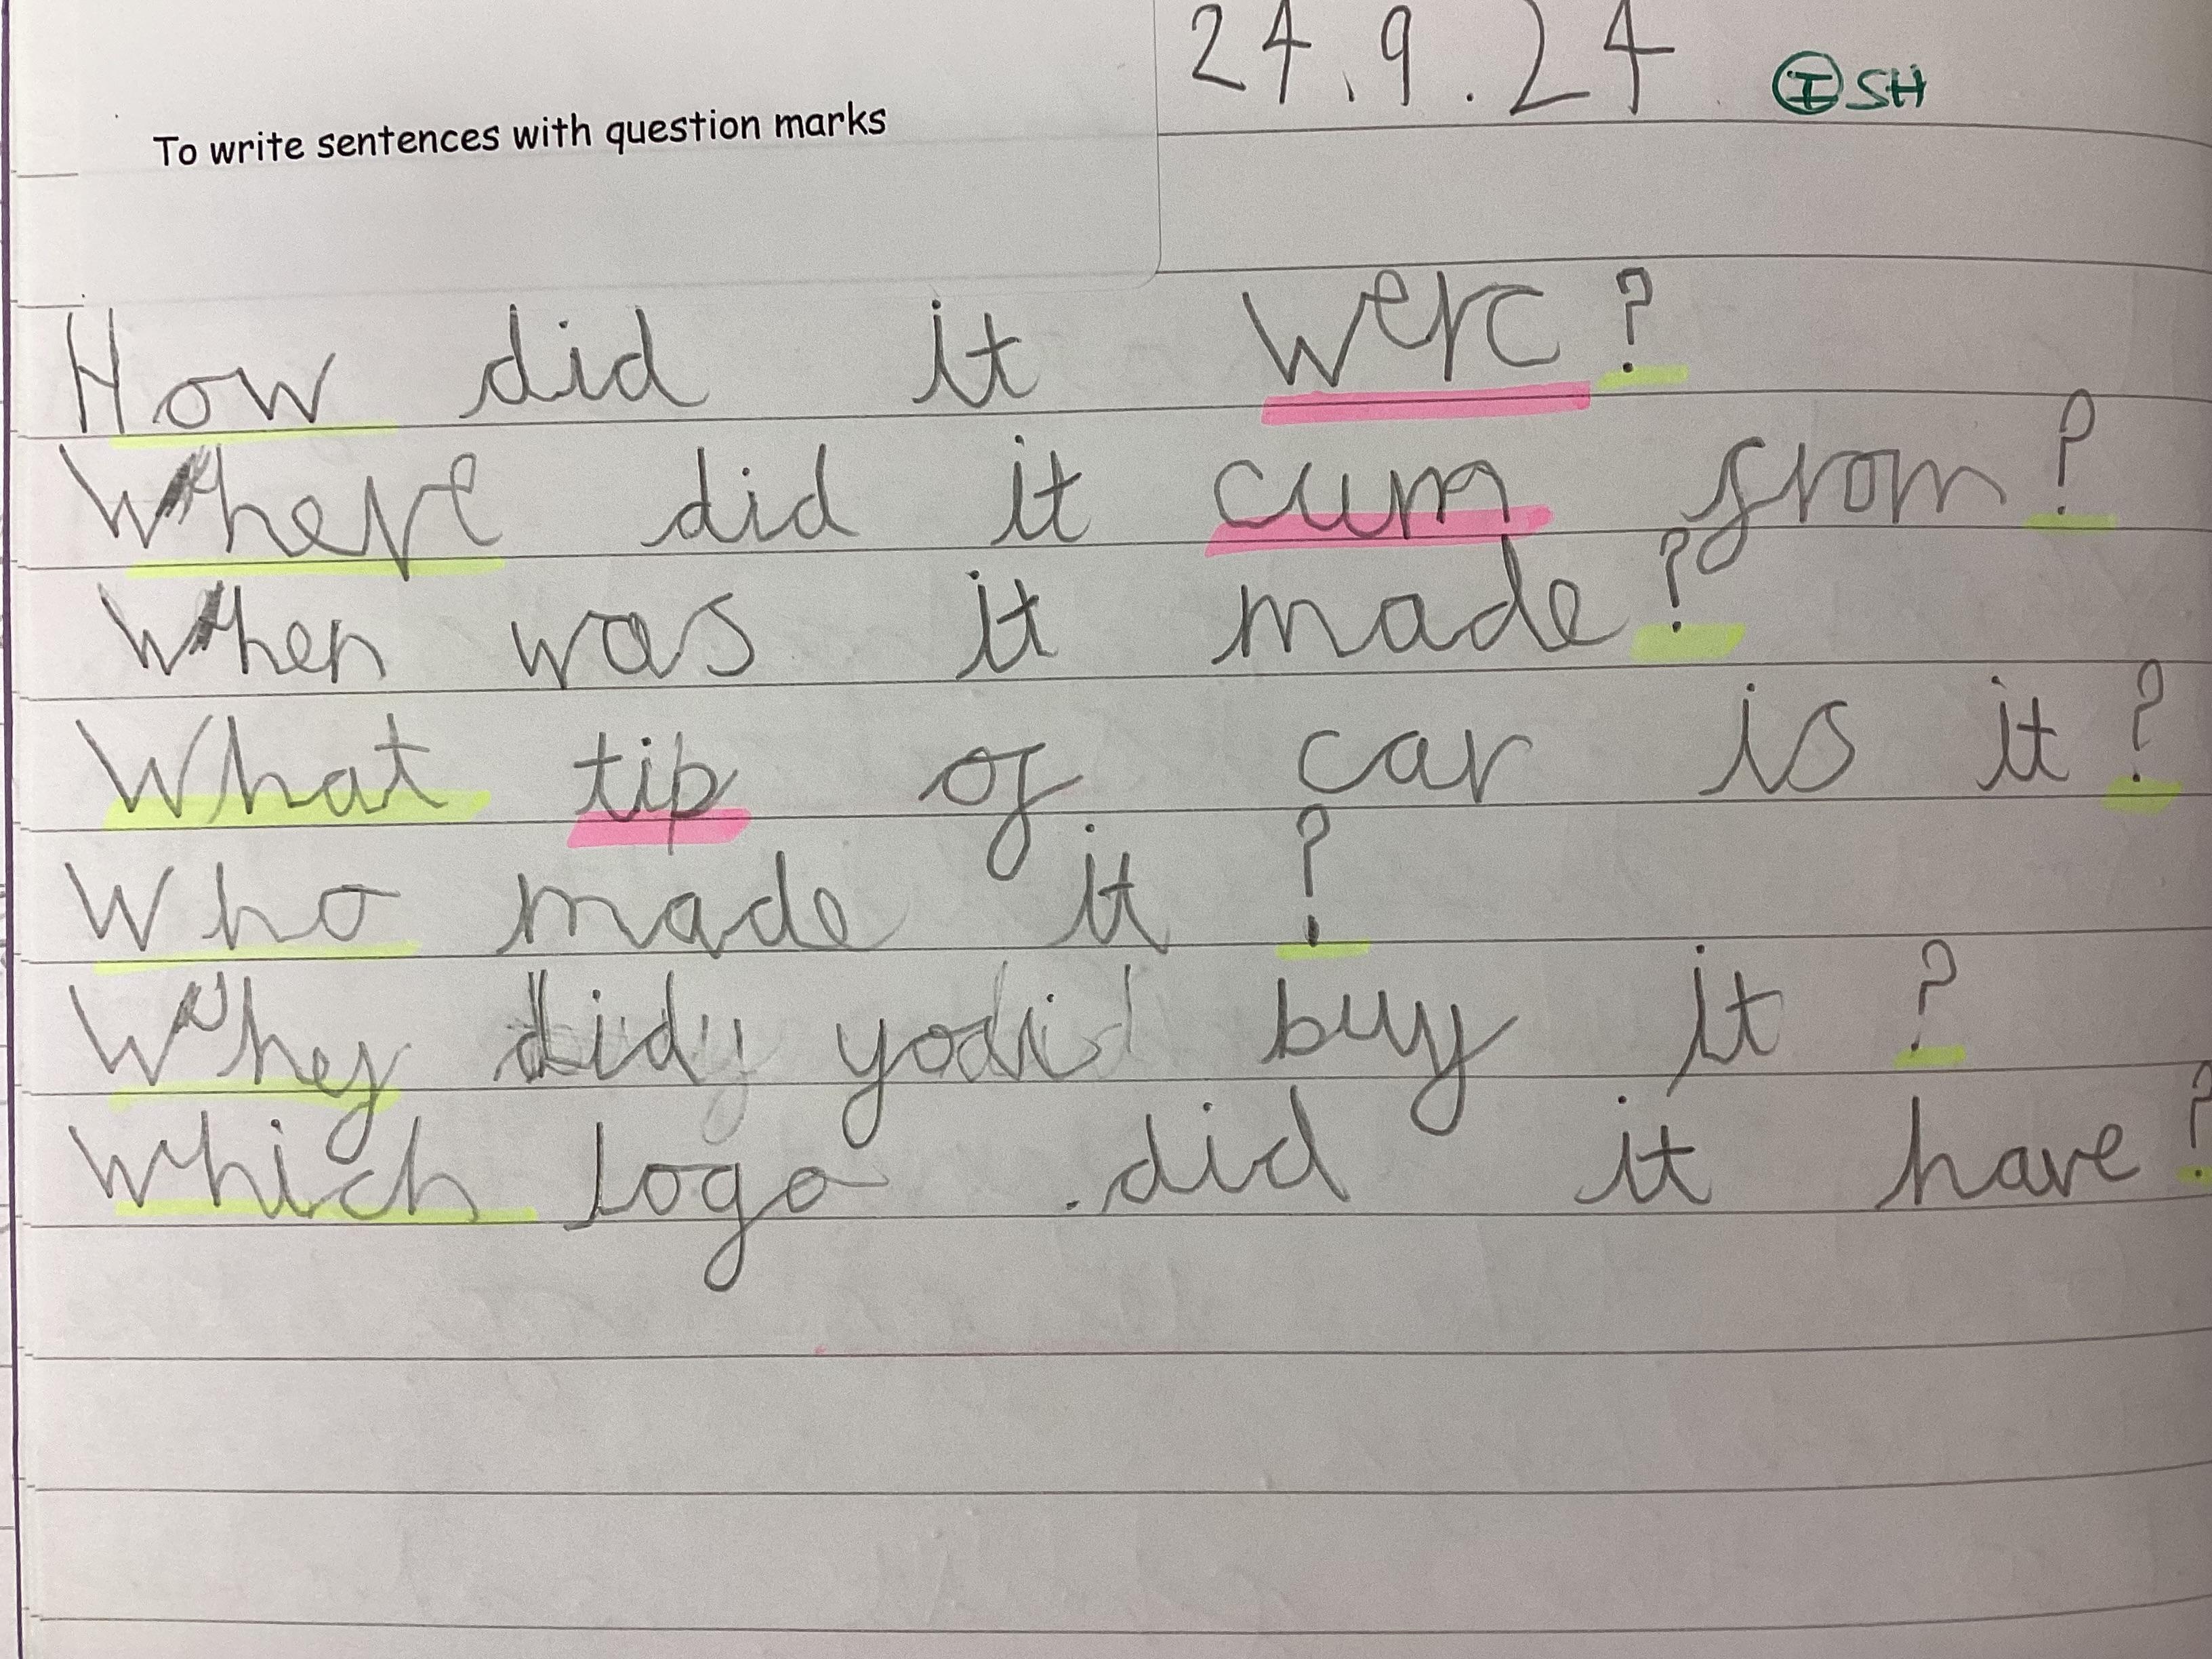 24.9.24 I SH
To write sentences with question marks
How did it werc?
Where did it cum from?
When was it made?
What tip of car is it?
Who made it?
Whey did buy it?
Which logo did it have?